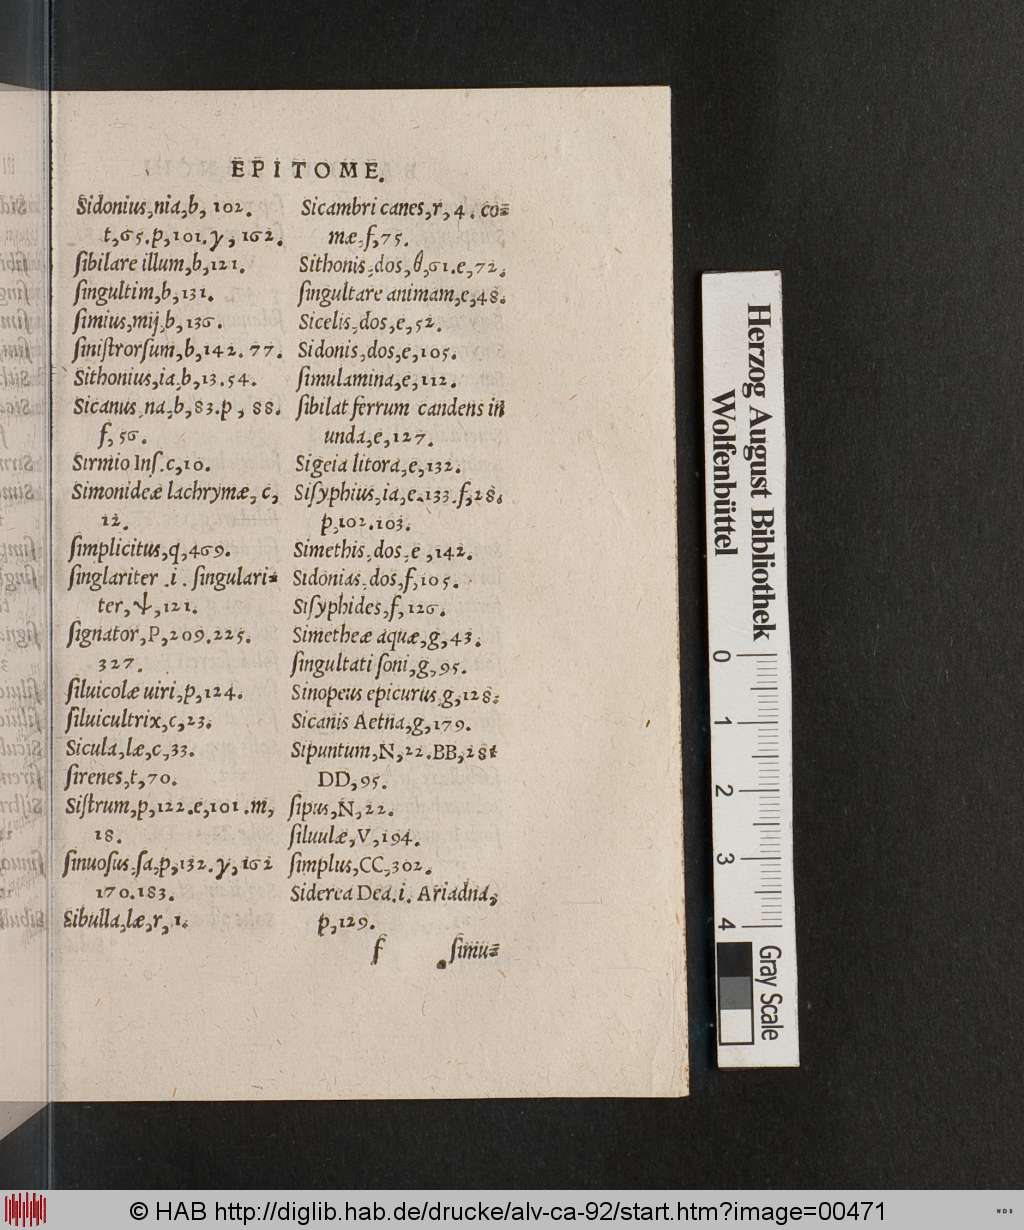 EPITOME.
Sidonius,nia,b, 102.
t,65.p,101.γ, 162.
ſibilare illum,b,121.
ſingultim,b,131.
ſimius,mij,b,136.
ſiniſtrorſum,b,142. 77.
Sithonius,ia,b,13.54.
Sicanus,na,b,83.p, 88.
f,56.
Sirmio Inſ.c,10.
Simonideæ lachrymæ, c,
12.
ſimplicitus,q,469.
ſinglariter .i. ſingulari⸗
ter,ψ,121.
ſignator,P,209.225.
327.
ſiluicolæ uiri,p,124.
ſiluicultrix,c,23.
Sicula,læ,c,33.
ſirenes,t,70.
Siſtrum,p,122.e,101.m,
18.
ſinuoſus,ſa,p,132.γ,162
170.183.
Sibulla,læ,r,1.
Sicambri canes,r,4. co⸗
mæ,f,75.
Sithonis,dos,θ,61.e,72.
ſingultare animam,e,48.
Sicelis,dos,e,52.
Sidonis,dos,e,105.
ſimulamina,e,112.
ſibilat ferrum candens in
unda,e,127.
Sigeia litora,e,132.
Siſyphius,ia,e.133.f,28.
p,102.103.
Simethis,dos,e,142.
Sidonias,dos,f,105.
Siſyphides,f,126.
Simetheæ aquæ,g,43.
ſingultati ſoni,g,95.
Sinopeus epicurus,g,128.
Sicanis Aetna,g,179.
Sipuntum,N,22.BB,281
DD,95.
ſipus,N,22.
ſiluulæ,V,194.
ſimplus,CC,302.
Siderea Dea.i. Ariadna,
p,129.
f ſimu⸗
Herzog August Bibliothek
Wolfenbüttel
0 1 2 3 4
Gray Scale
© HAB http://diglib.hab.de/drucke/alv-ca-92/start.htm?image=00471